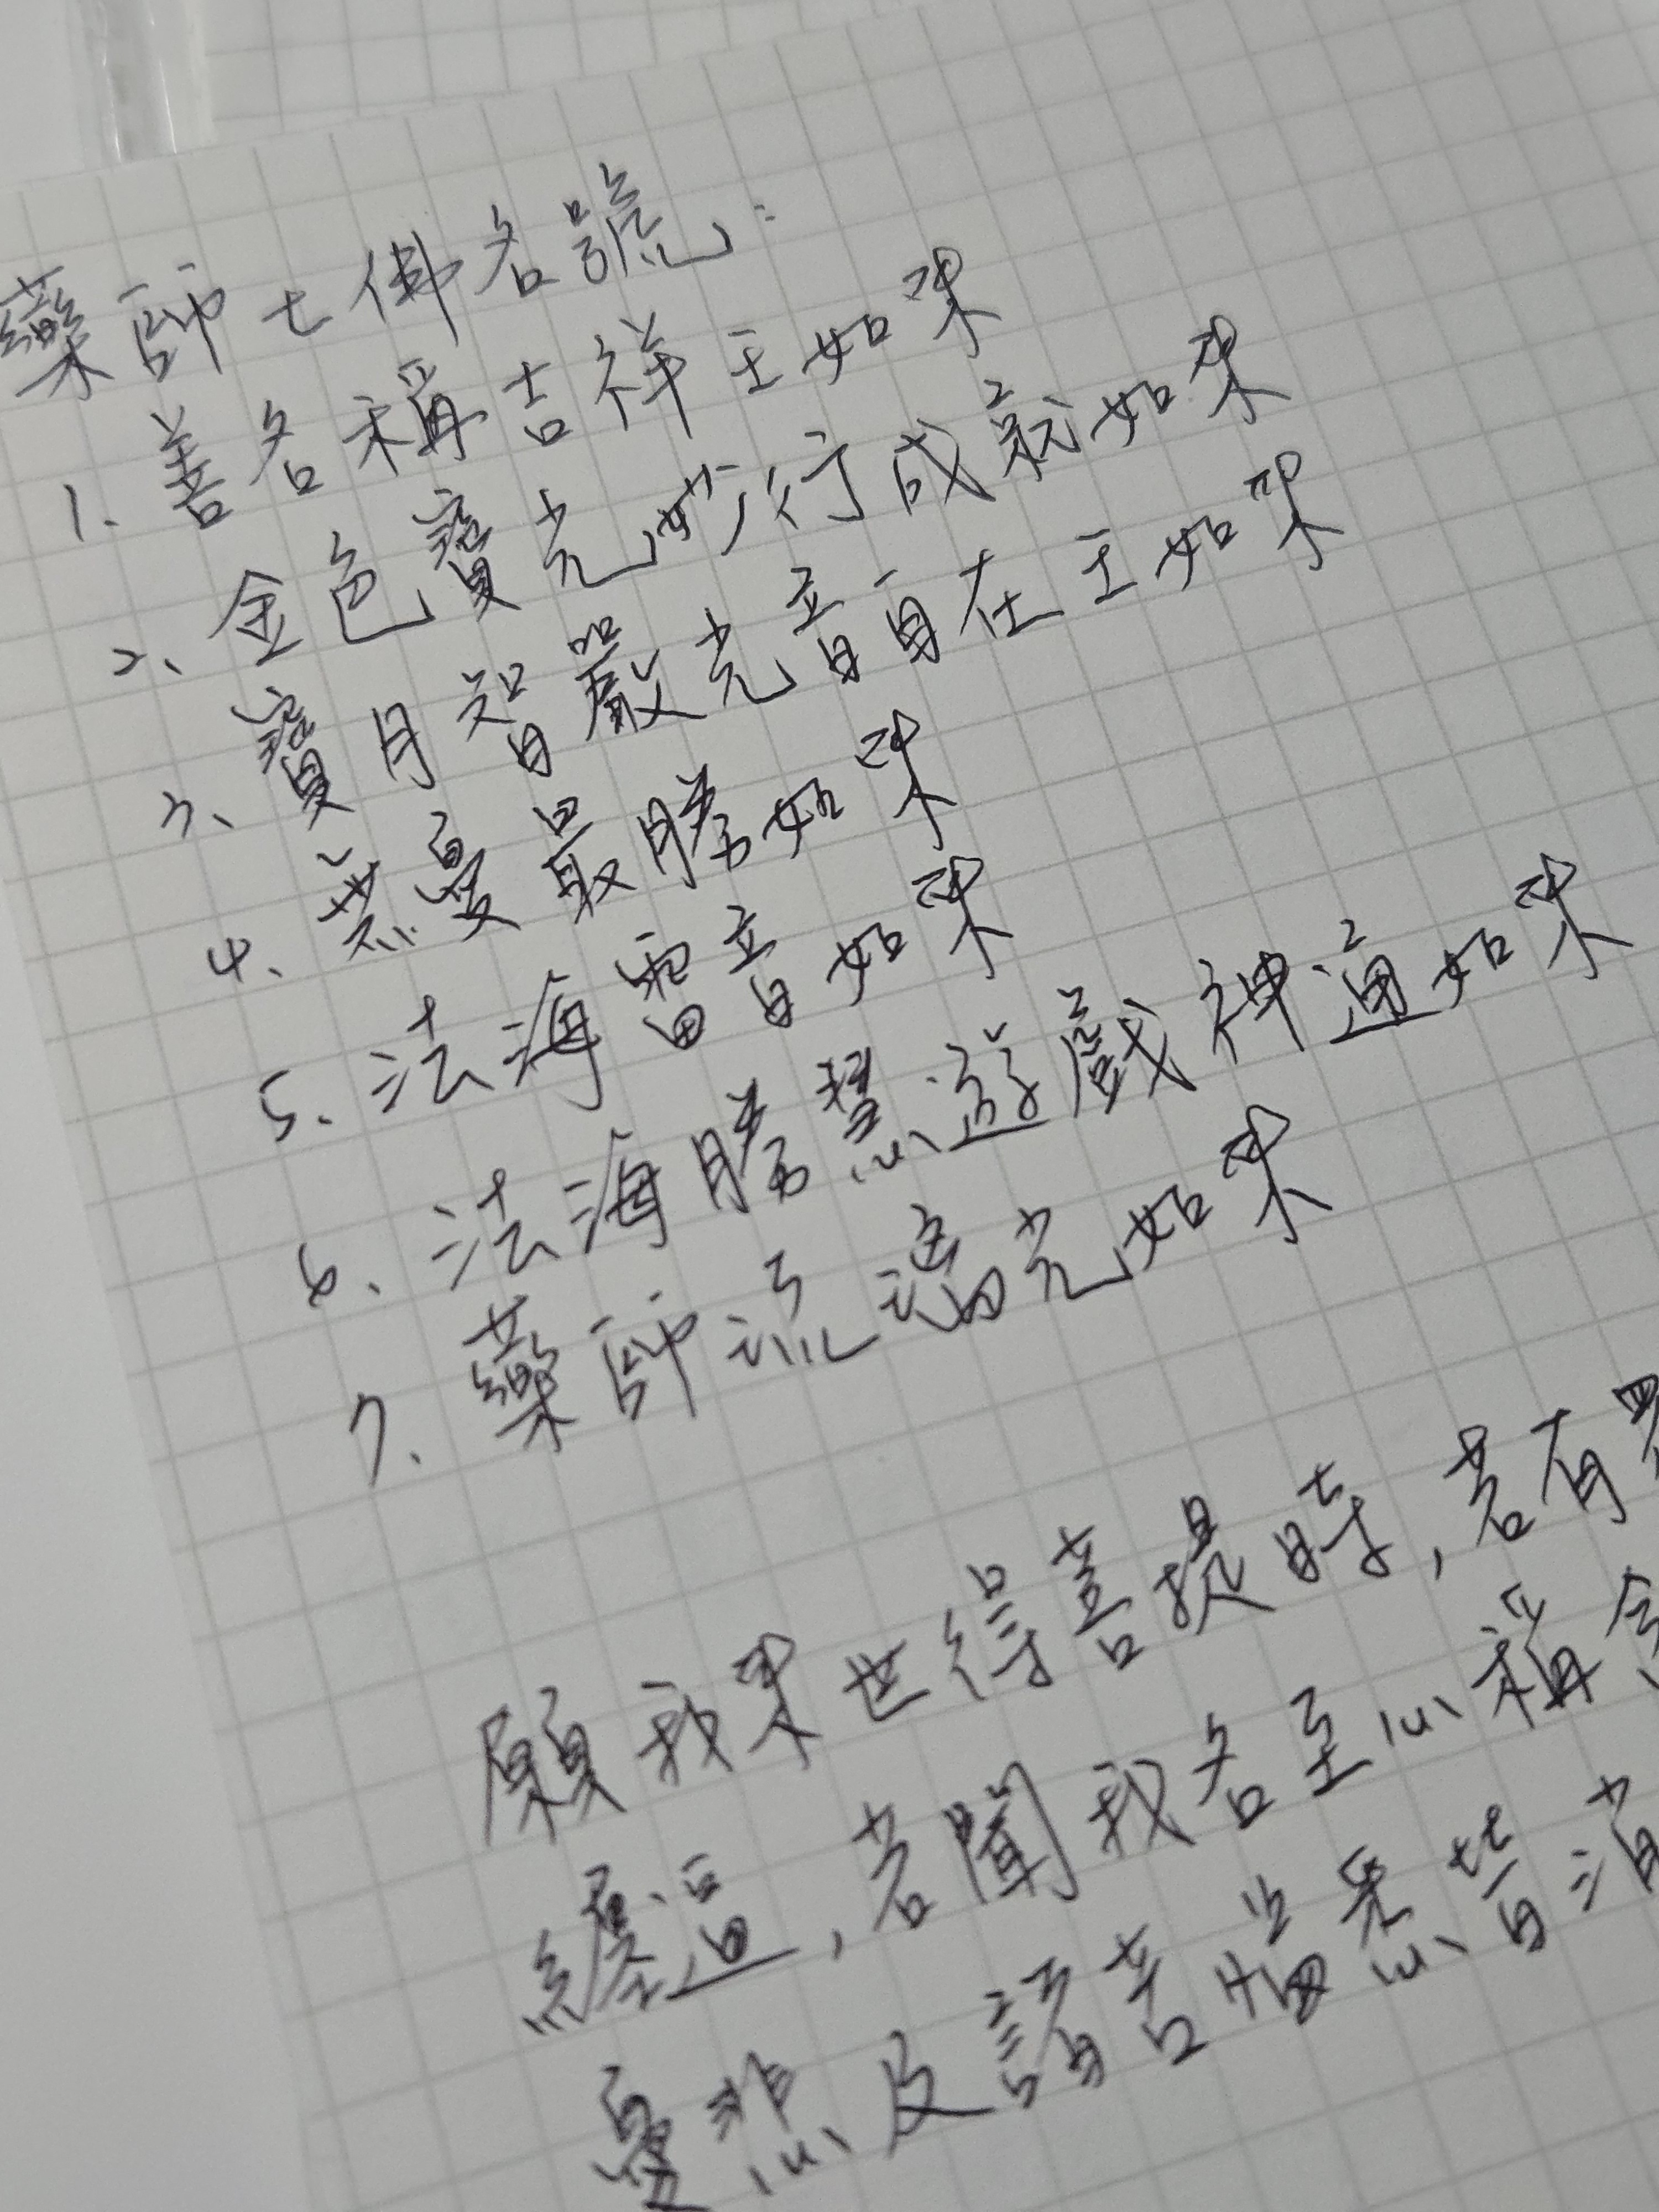 藥師七佛名號:
1、善名稱吉祥王如來
2、金色寶光妙行成就如來
3、寶月智嚴光音自在王如來
4、無憂最勝如來
5、法海雷音如來
6、法海勝慧遊戲神通如來
7、藥師琉璃光如來
願我來世得菩提時,若有眾
纏逼,若聞我名至心稱念
憂悲及諸苦惱悉皆消